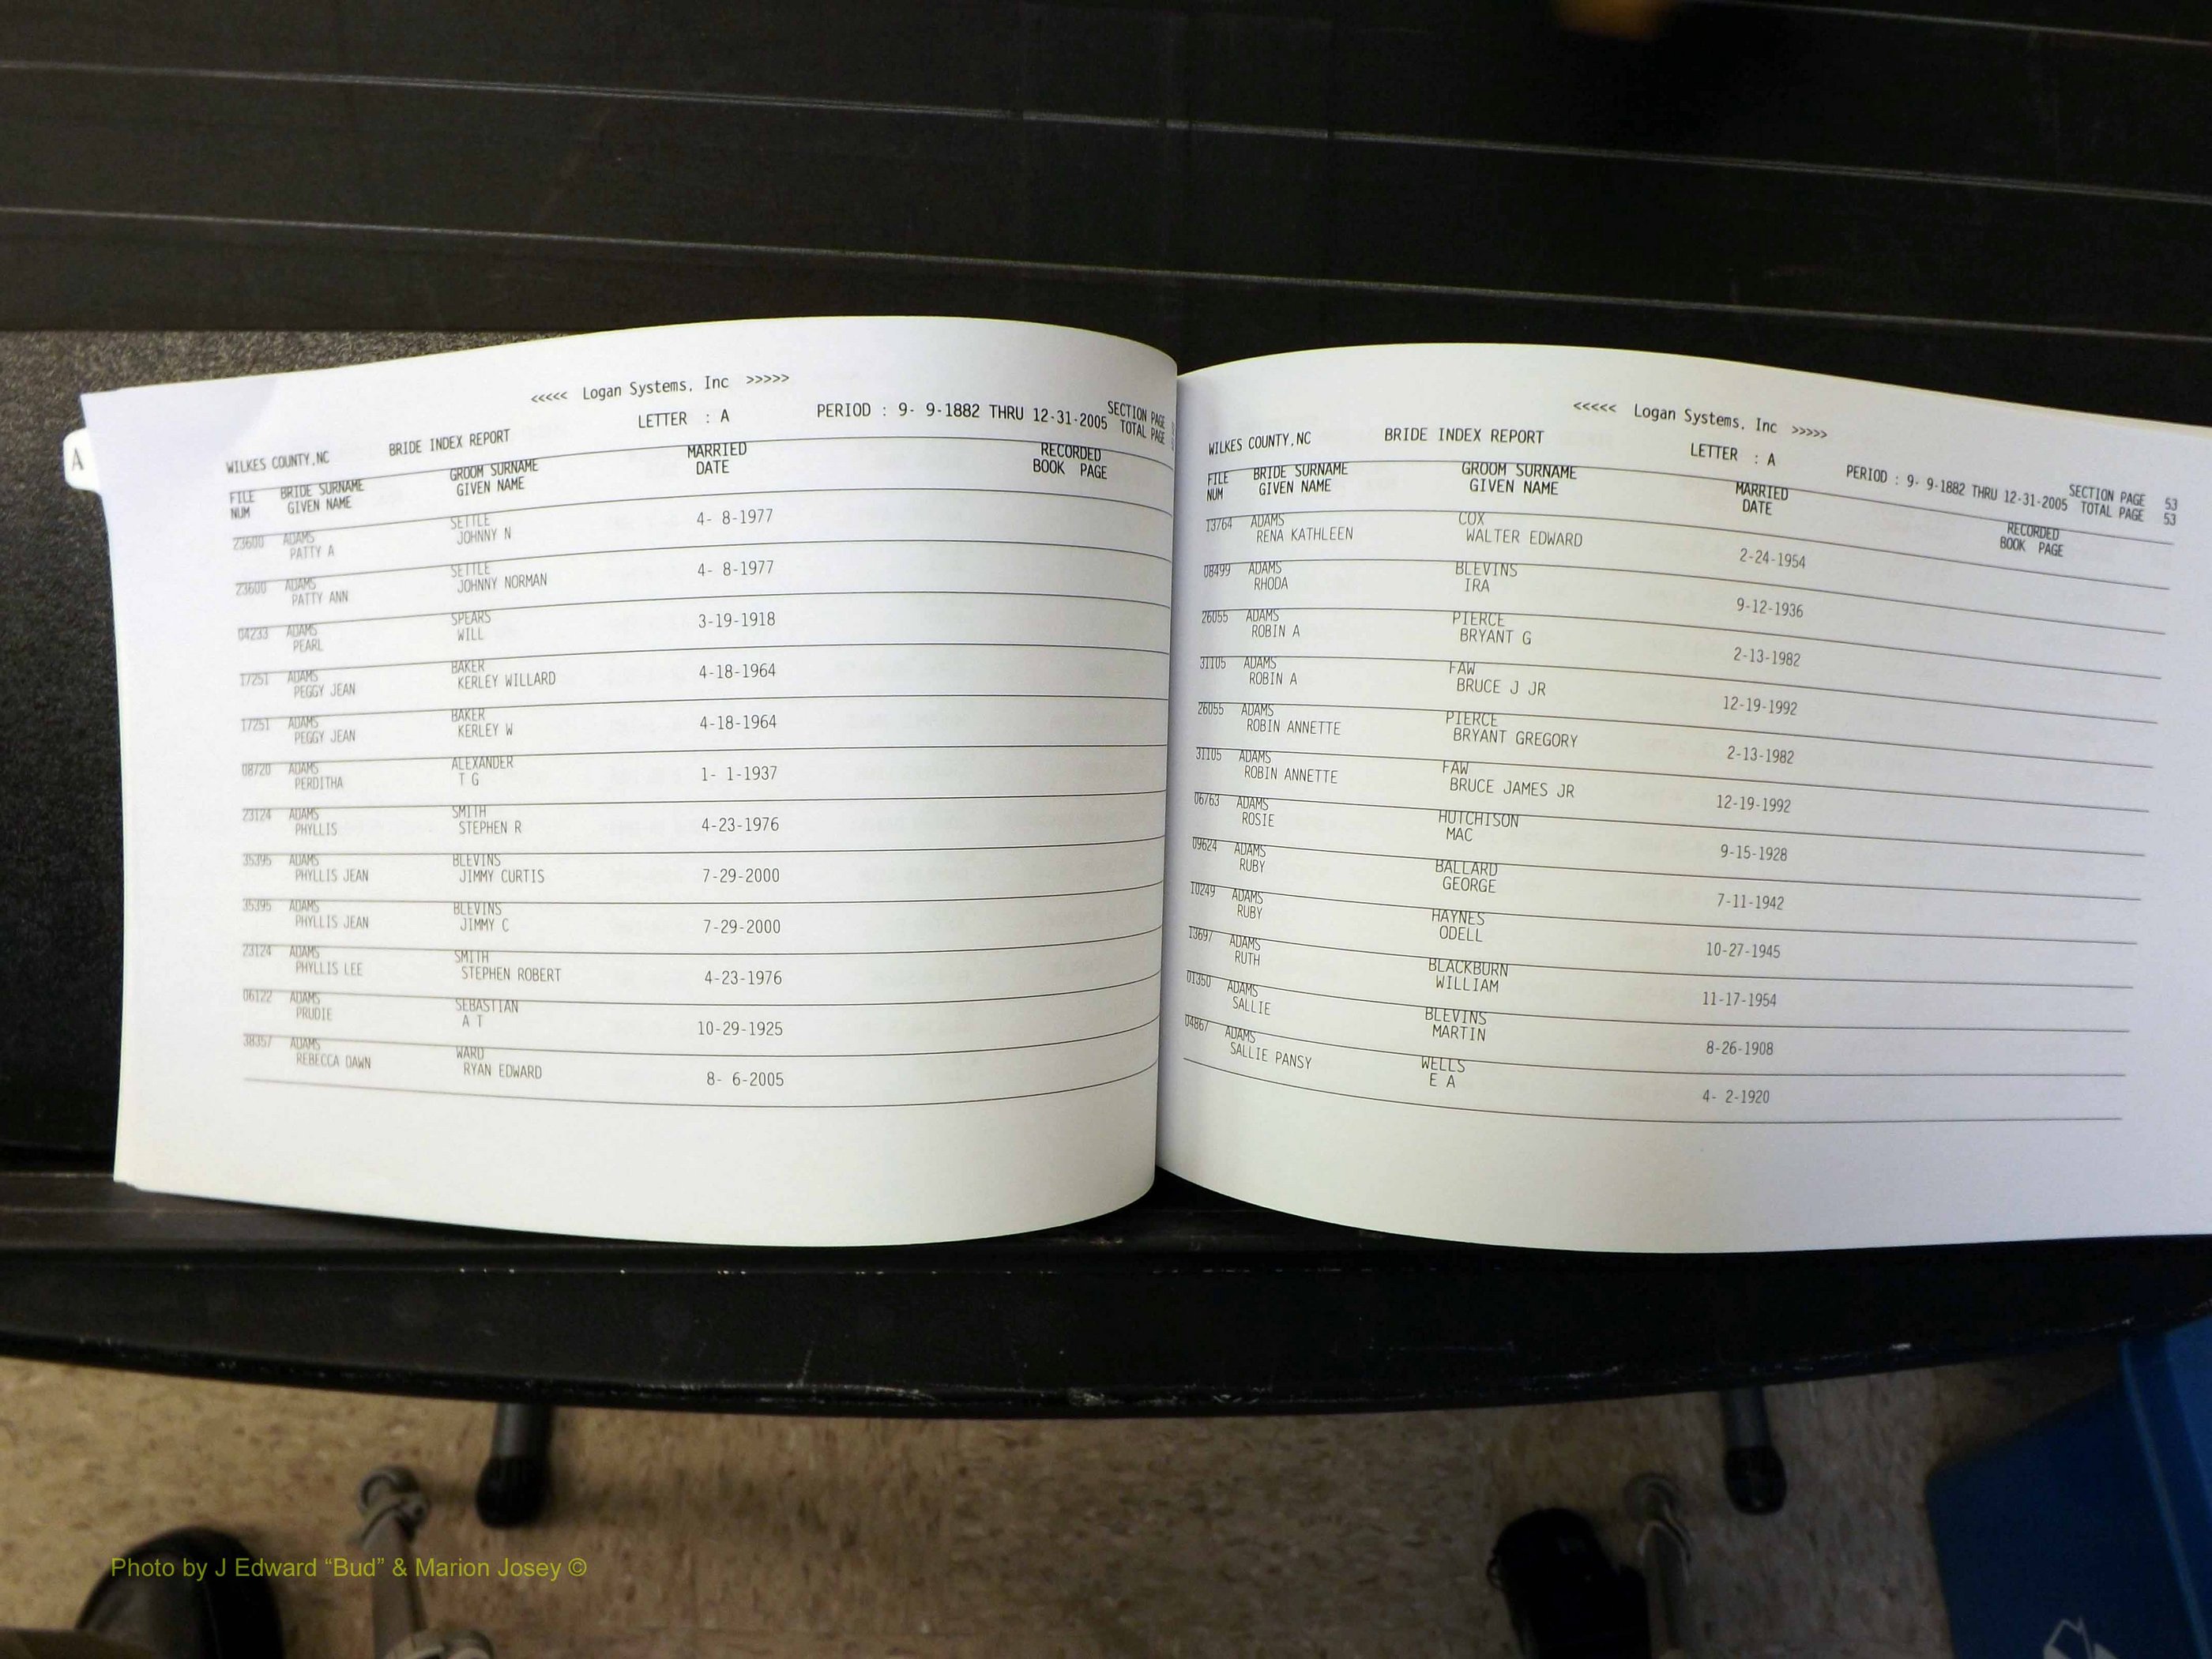 A
<<<<< Logan Systems, Inc >>>>>
WILKES COUNTY,NC BRIDE INDEX REPORT LETTER : A PERIOD : 9- 9-1882 THRU 12-31-2005 SECTION PAGE
TOTAL PAGE
FILE BRIDE SURNAME GROOM SURNAME MARRIED RECORDED
NUM GIVEN NAME GIVEN NAME DATE BOOK PAGE
23600 ADAMS SETTLE
PATTY A JOHNNY N 4- 8-1977
23600 ADAMS SETTLE
PATTY ANN JOHNNY NORMAN 4- 8-1977
04233 ADAMS SPEARS
PEARL WILL 3-19-1918
17251 ADAMS BAKER
PEGGY JEAN KERLEY WILLARD 4-18-1964
17251 ADAMS BAKER
PEGGY JEAN KERLEY W 4-18-1964
08720 ADAMS ALEXANDER
PERDITHA T G 1- 1-1937
23124 ADAMS SMITH
PHYLLIS STEPHEN R 4-23-1976
35395 ADAMS BLEVINS
PHYLLIS JEAN JIMMY CURTIS 7-29-2000
35395 ADAMS BLEVINS
PHYLLIS JEAN JIMMY C 7-29-2000
23124 ADAMS SMITH
PHYLLIS LEE STEPHEN ROBERT 4-23-1976
06122 ADAMS SEBASTIAN
PRUDIE A T 10-29-1925
38357 ADAMS WARD
REBECCA DAWN RYAN EDWARD 8- 6-2005
<<<<< Logan Systems, Inc >>>>>
WILKES COUNTY,NC BRIDE INDEX REPORT LETTER : A PERIOD : 9- 9-1882 THRU 12-31-2005 SECTION PAGE 53
TOTAL PAGE 53
FILE BRIDE SURNAME GROOM SURNAME MARRIED RECORDED
NUM GIVEN NAME GIVEN NAME DATE BOOK PAGE
13764 ADAMS COX
RENA KATHLEEN WALTER EDWARD 2-24-1954
08499 ADAMS BLEVINS
RHODA IRA 9-12-1936
26055 ADAMS PIERCE
ROBIN A BRYANT G 2-13-1982
31105 ADAMS FAW
ROBIN A BRUCE J JR 12-19-1992
26055 ADAMS PIERCE
ROBIN ANNETTE BRYANT GREGORY 2-13-1982
31105 ADAMS FAW
ROBIN ANNETTE BRUCE JAMES JR 12-19-1992
06763 ADAMS HUTCHISON
ROSIE MAC 9-15-1928
09624 ADAMS BALLARD
RUBY GEORGE 7-11-1942
10249 ADAMS HAYNES
RUBY ODELL 10-27-1945
13697 ADAMS BLACKBURN
RUTH WILLIAM 11-17-1954
01350 ADAMS BLEVINS
SALLIE MARTIN 8-26-1908
04867 ADAMS WELLS
SALLIE PANSY E A 4- 2-1920
Photo by J Edward “Bud” & Marion Josey ©